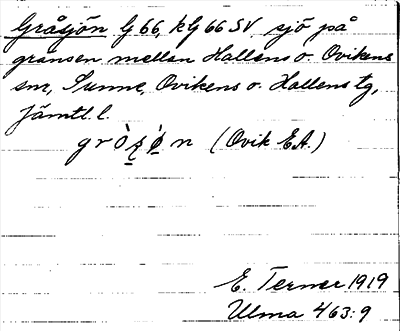 Gråsjön G 66, kG 66 SV sjö på
gränsen mellan Hallens o. Ovikens
sn, Sunne, Ovikens o. Hallens tg,
Jämtl. l.
(Ovik E.A.)
E. Terner 1919
Ulma 463:9